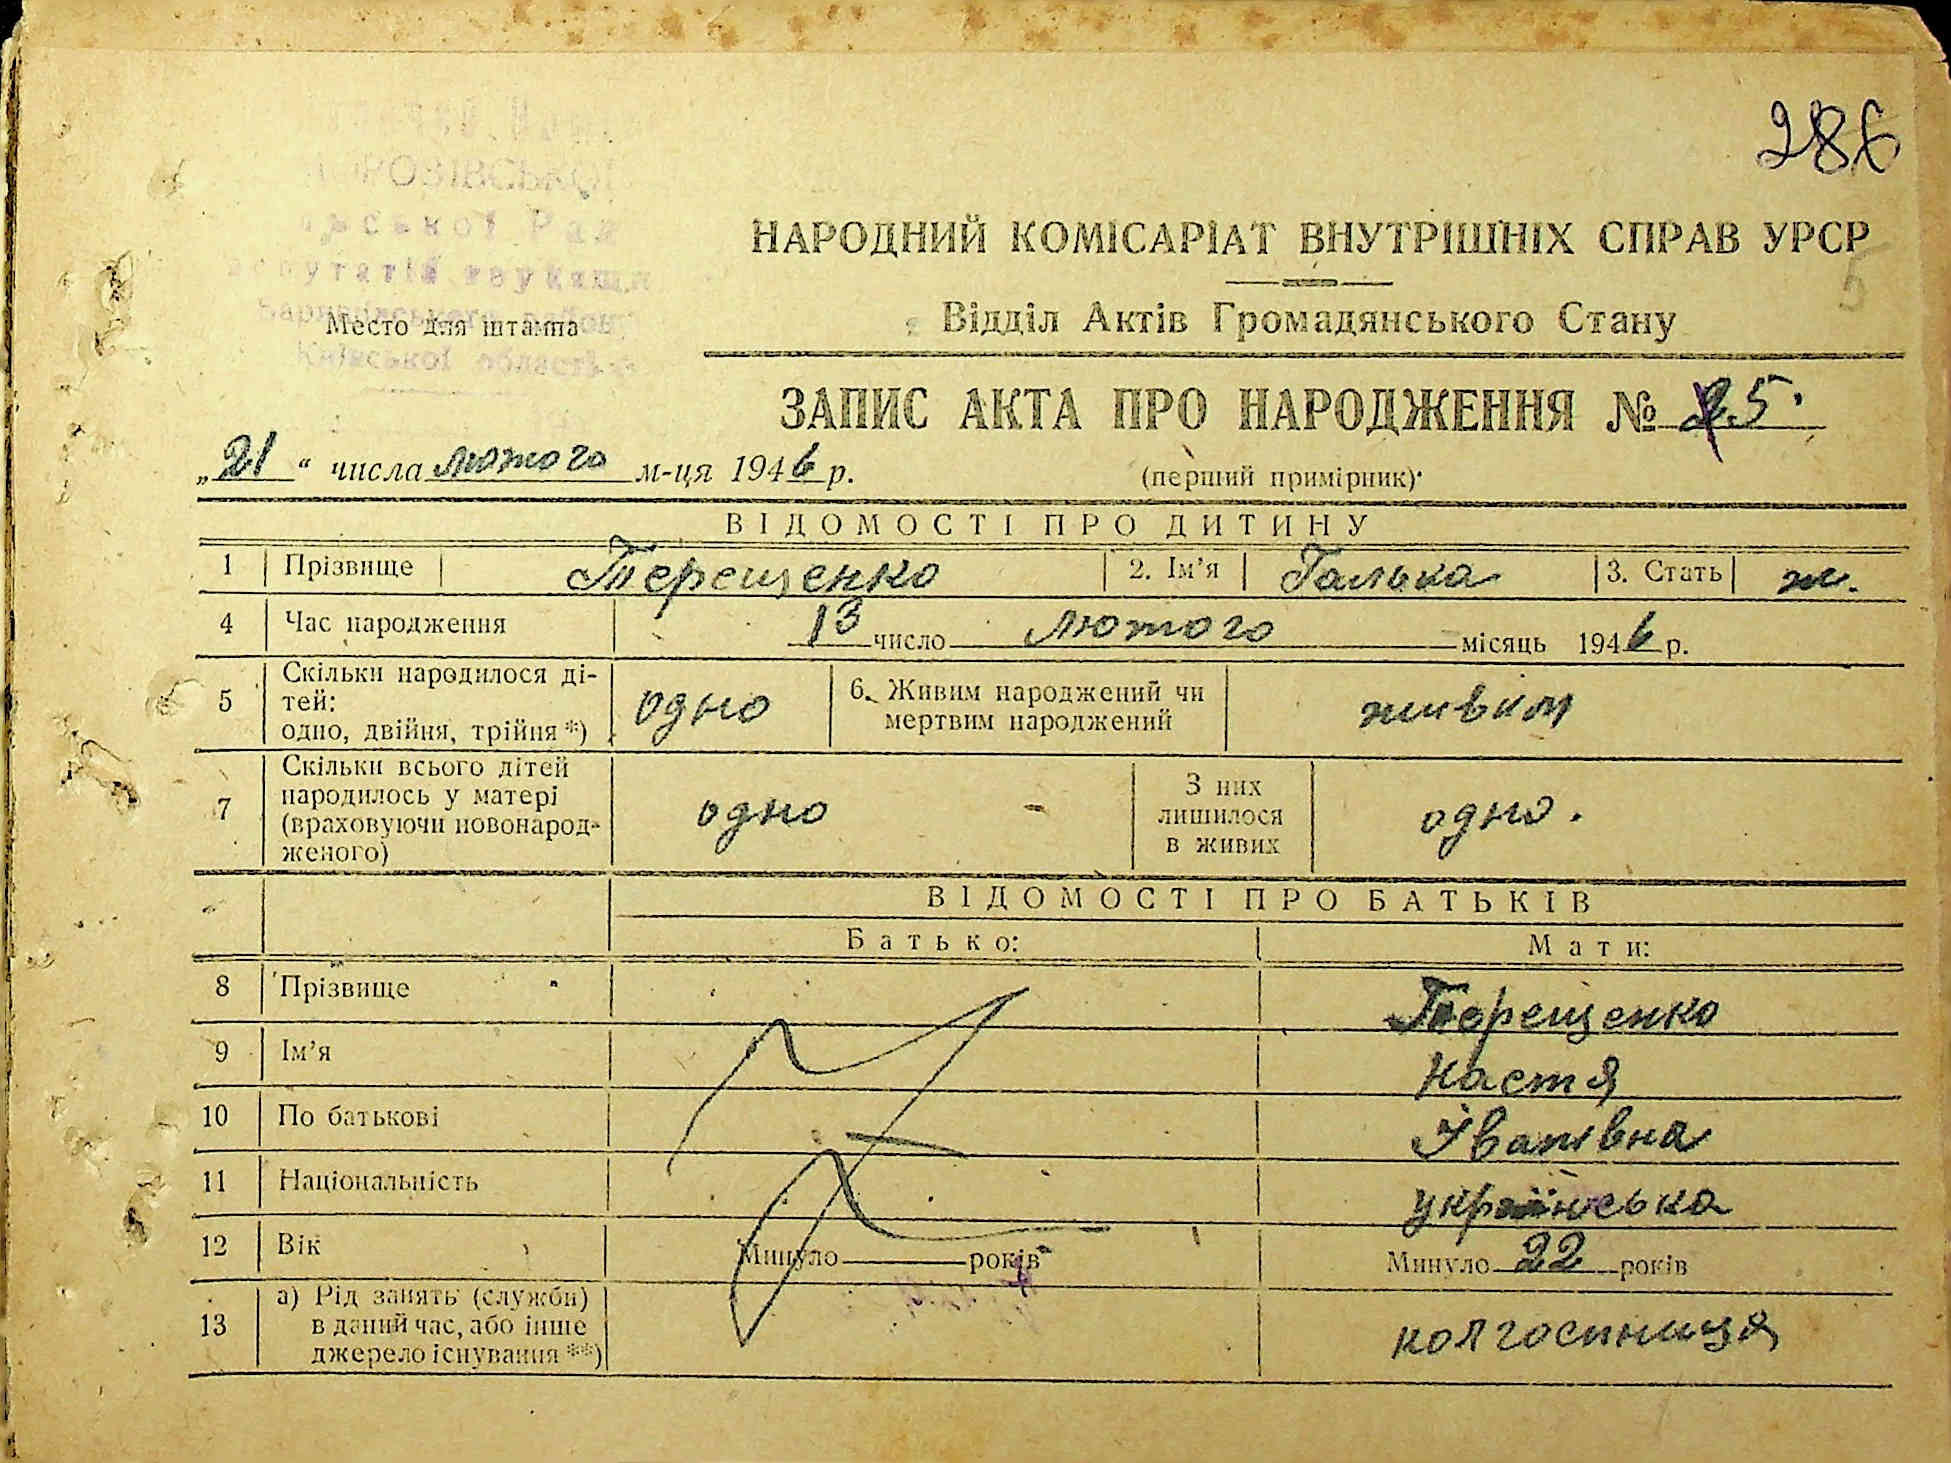 286
НАРОДНИЙ КОМІСАРІАТ ВНУТРІШНІХ СПРАВ УРСР
5
Відділ Актів Громадянського Стану
Место для штампа
Київської області
ЗАПИС АКТА ПРО НАРОДЖЕННЯ № 5.
„21“ числа лютого м-ця 1946 р.
(перший примірник)
ВІДОМОСТІ ПРО ДИТИНУ
1 Прізвище Терещенко 2. Ім’я Галька 3. Стать ж.
4 Час народження 13 число лютого місяць 1946 р.
5 Скільки народилося ді-
тей:
одно, двійня, трійня *) одно 6. Живим народжений чи
мертвим народжений живим
7 Скільки всього дітей
народилось у матері
(враховуючи новонарод-
женого) одно З них
лишилося
в живих одно.
ВІДОМОСТІ ПРО БАТЬКІВ
Батько: Мати:
8 Прізвище Терещенко
9 Ім’я Настя
10 По батькові Іванівна
11 Національність українська
12 Вік Минуло років Минуло 22 років
13 а) Рід занять (служби)
в даний час, або інше
джерело існування **) колгоспниця